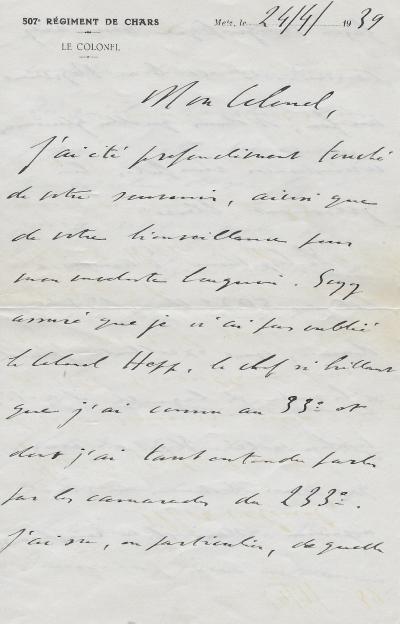 507e RÉGIMENT DE CHARS
LE COLONEL
Metz, le 24/4/1939
Mon Colonel,
J'ai été profondément touché
de votre souvenir, ainsi que
de votre bienveillance pour
mon modeste bouquin. Soyez
assuré que je n'ai pas oublié
le Colonel Hepp, le chef si brillant
que j'ai connu au 33e et
dont j'ai tant entendu parler
par les camarades du 233e.
J'ai su, en particulier, de quelle